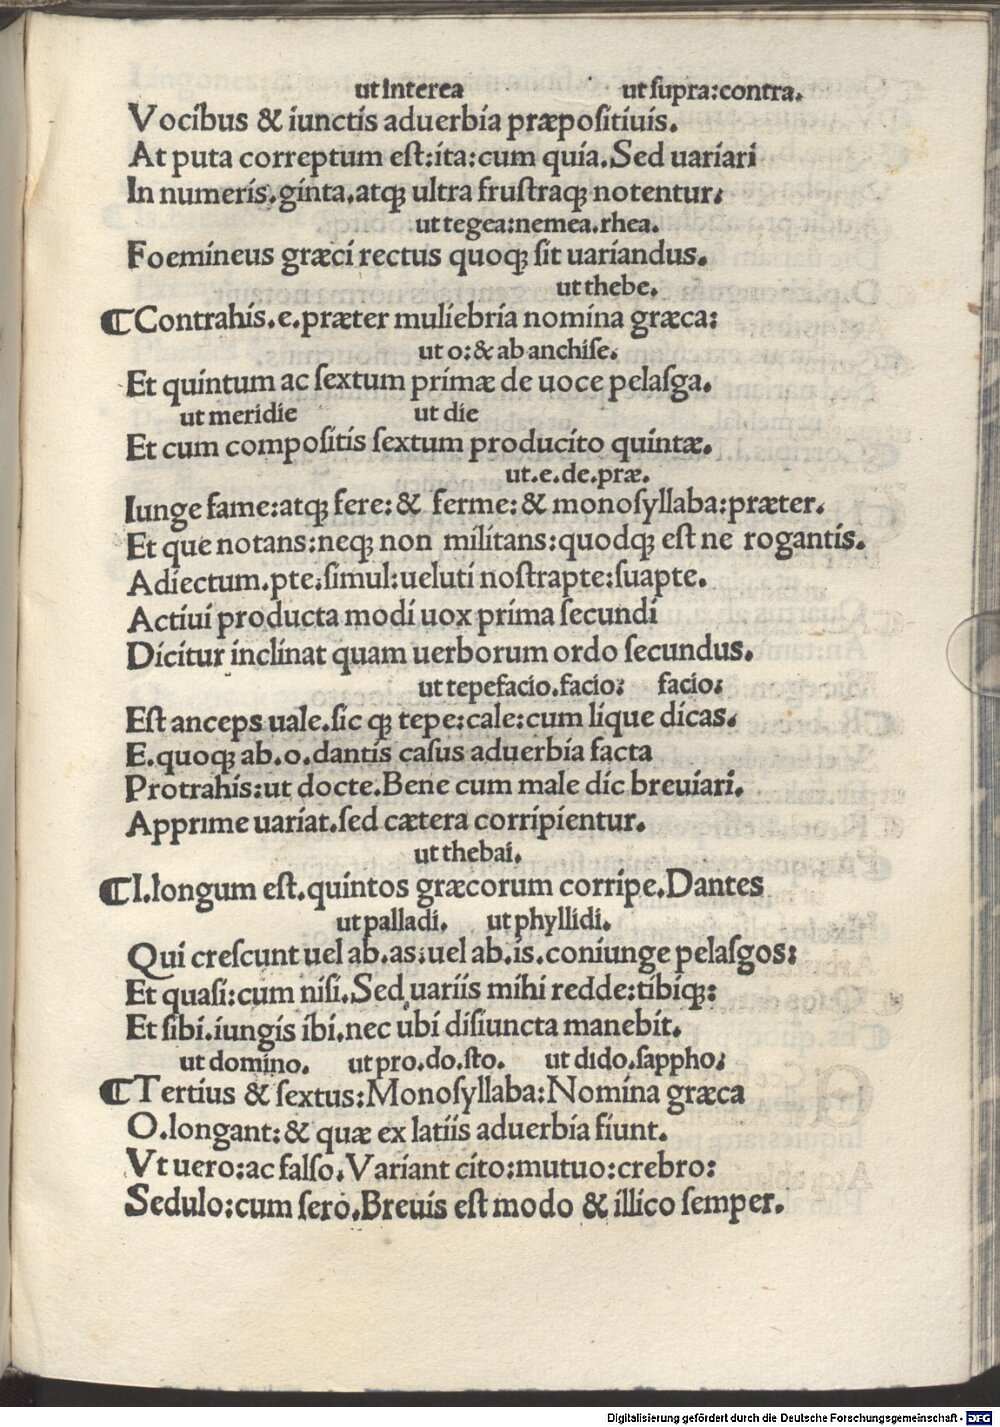 ut interea ut ſupra:contra.
Vocibus & iunctis aduerbia præpoſitiuis.
At puta correptum eſt:ita:cum quia.Sed uariari
In numeris.ginta.atqꝫ ultra fruſtraqꝫ notentur.
ut tegea:nemea.rhea.
Foemineus græci rectus quoqꝫ ſit uariandus.
ut thebe.
¶Contrahis.e.præter muliebria nomina græca:
ut o:& ab anchiſe.
Et quintum ac ſextum primæ de uoce pelaſga.
ut meridie ut die
Et cum compoſitis ſextum producito quintæ.
ut.e.de.præ.
Iunge fame:atqꝫ fere:& ferme:& monoſyllaba:præter.
Et que notans:neqꝫ non militans:quodqꝫ eſt ne rogantis.
Adiectum.pte.ſimul:ueluti noſtrapte:ſuapte.
Actiui producta modi uox prima ſecundi
Dicitur inclinat quam uerborum ordo ſecundus.
ut tepefacio.facio: facio:
Eſt anceps uale.ſic qꝫ tepe:cale:cum lique dicas.
E.quoqꝫ ab.o.dantis caſus aduerbia facta
Protrahis:ut docte.Bene cum male dic breuiari.
Apprime uariat.ſed cætera corripientur.
ut thebai.
¶I.longum eſt.quintos græcorum corripe.Dantes
ut palladi. ut phyllidi.
Qui creſcunt uel ab.as:uel ab.is.coniunge pelaſgos:
Et quaſi:cum niſi.Sed uariis mihi redde:tibiqꝫ:
Et ſibi.iungis ibi.nec ubi diſiuncta manebit.
ut domino. ut pro.do.ſto. ut dido.ſappho:
¶Tertius & ſextus:Monoſyllaba:Nomina græca
O.longant:& quæ ex latiis aduerbia fiunt.
Vt uero:ac falſo.Variant cito:mutuo:crebro:
Sedulo:cum ſero.Breuis eſt modo & illico ſemper.
Digitalisierung gefördert durch die Deutsche Forschungsgemeinschaft - DFG